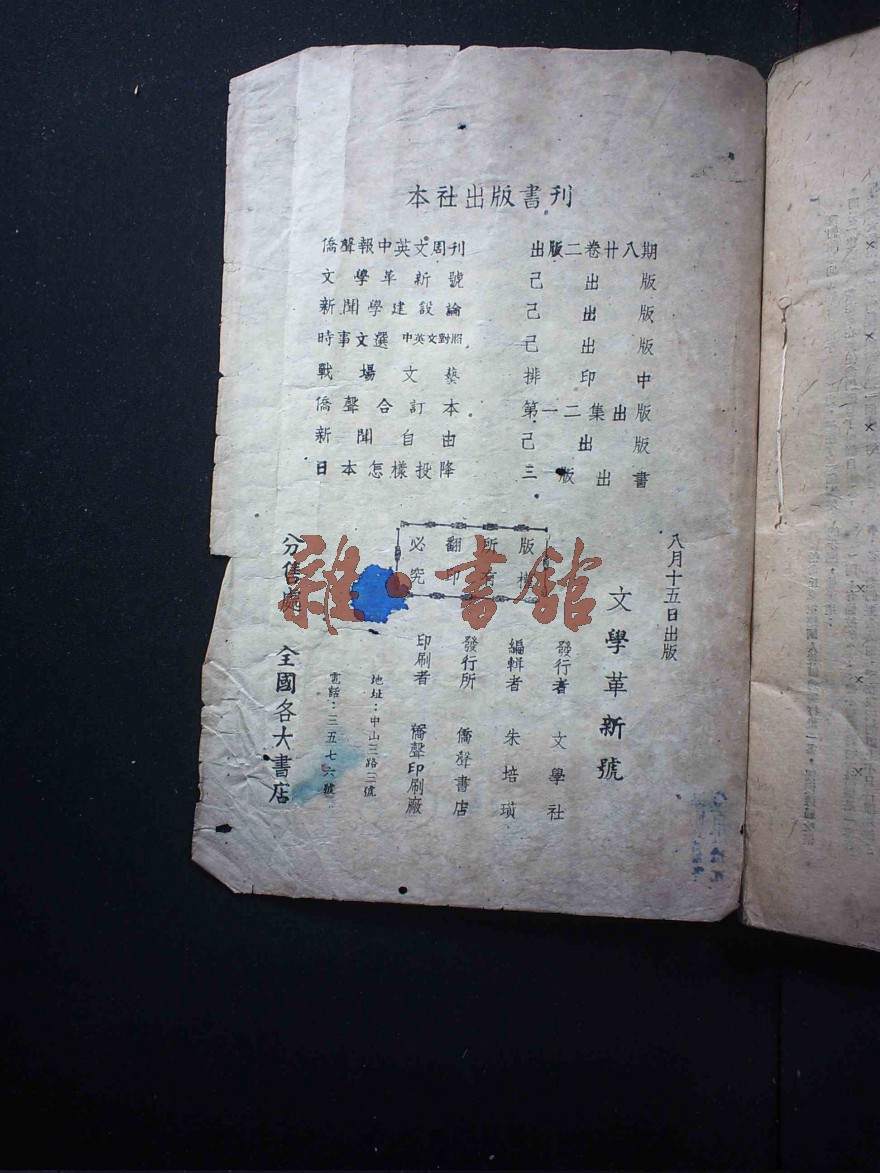 本社出版書刊
僑聲報中英文周刊 出版二卷廿八期
文學革新號 己出版
新聞學建設論 己出版
時事文選 中英文對照 己出版
戰場文藝 排印中
僑聲合訂本 第一二集出版
新聞自由 己出版
日本怎樣投降 三版出書
八月十五日出版
文學革新號
版權所有
翻印必究
發行者 文學社
編輯者 朱培璜
發行所 僑聲書店
印刷者 僑聲印刷廠
地址：中山三路三號
電話：三五七六號
分售處 全國各大書店
雜·書館